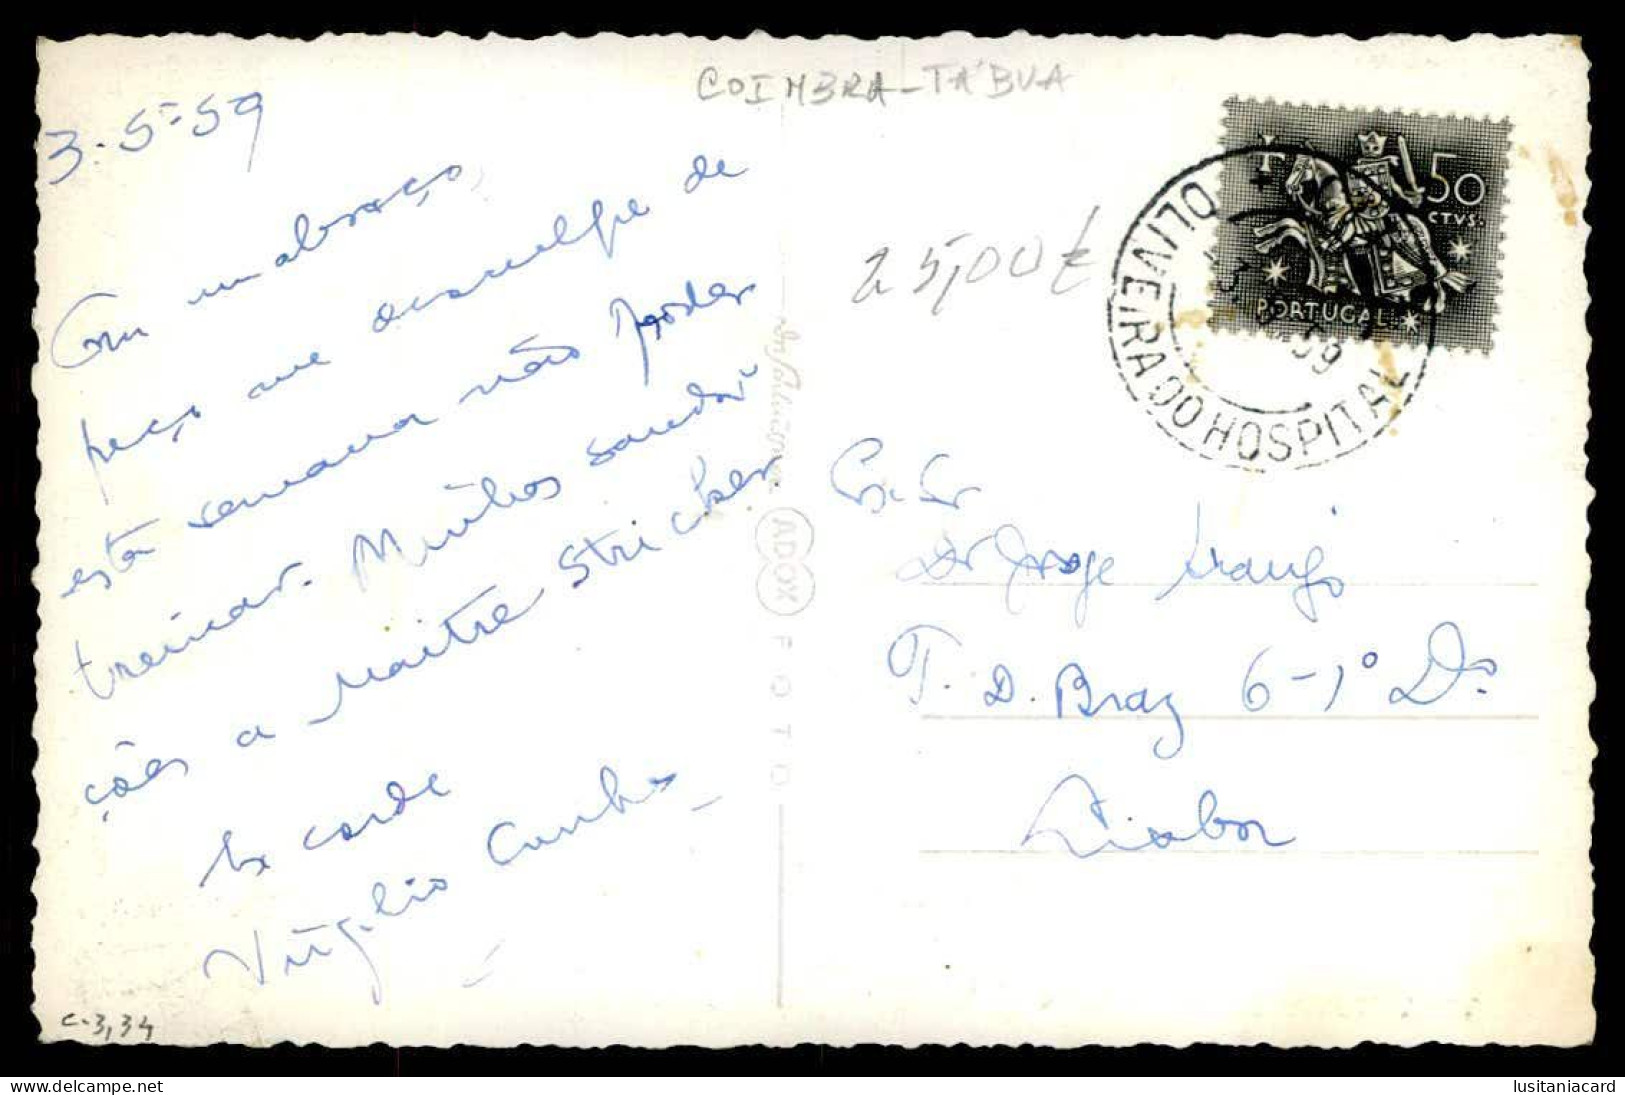 COIMBRA-TÁBUA
3-5-59
Com um abraço,
peço me desculpe de
esta semana não poder
treinar. Muitos sauda
ções a Maitre Stricker
Virgilio Cunha
25,00
T 50
CTVS.
PORTUGAL
OLIVEIRA DO HOSPITAL
59
ADOX
FOTO
Dr Jorge Araujo
T. D. Braz 6-1º Dº
Lisboa
C-3,34
delcampe.net
lusitaniacard